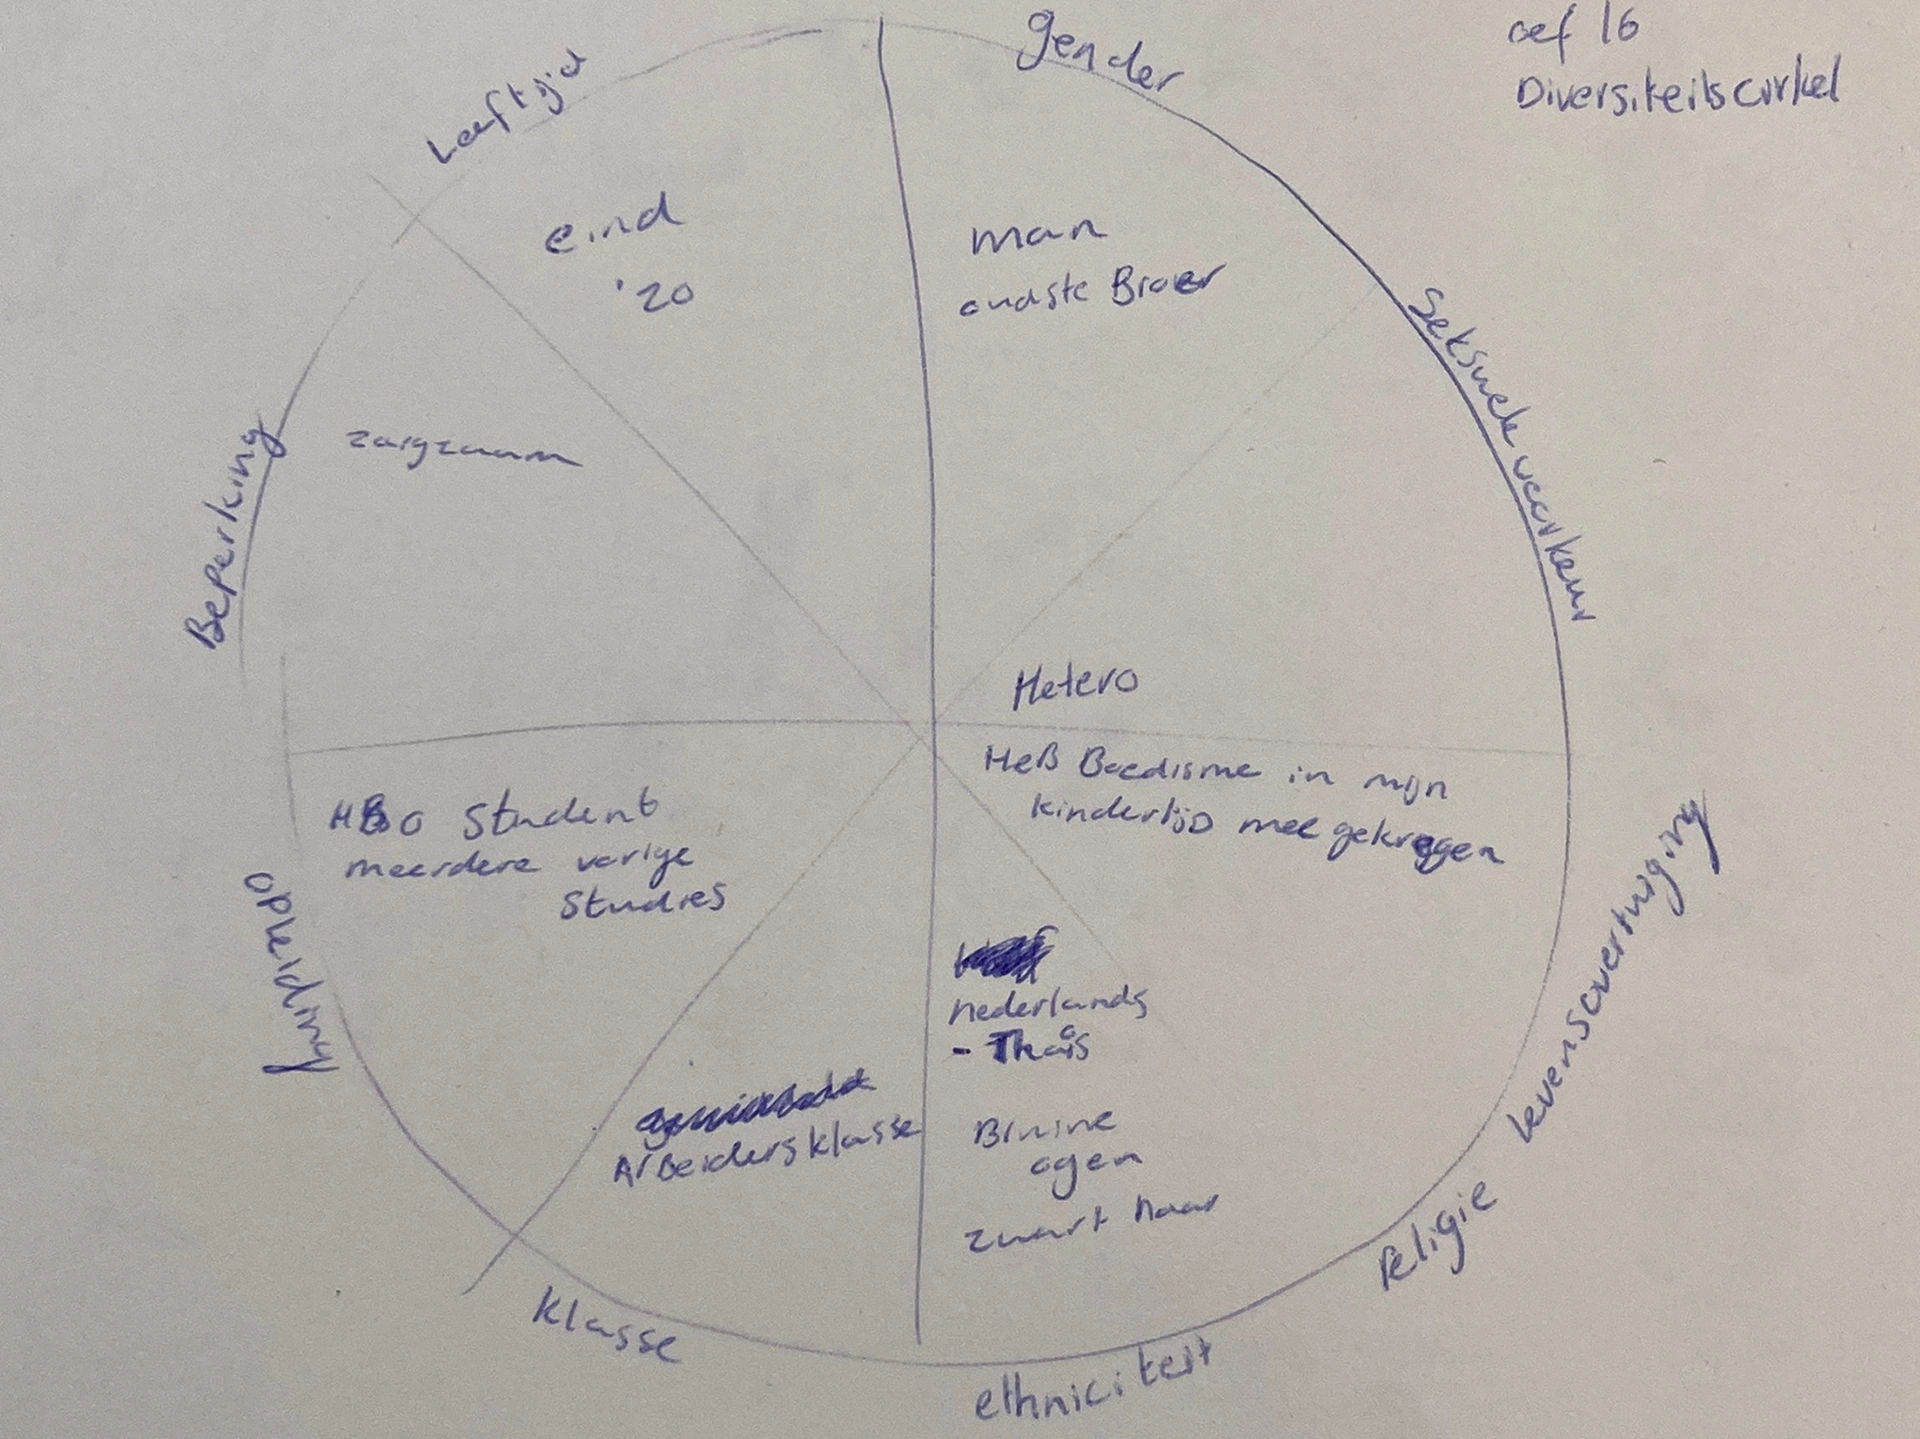 oef 16
Diversiteitscirkel
gender
man
oudste Broer
Seksuele voorkeur
Hetero
levensovertuiging
religie
Heb Boedisme in mijn
kindertijd mee gekregen
ethniciteit
nederlands
- Thais
Bruine
ogen
zwart haar
klasse
Arbeidersklasse
opleiding
HBO Student
meerdere vorige
Studies
Beperking
zorgzaam
Leeftijd
eind
'20